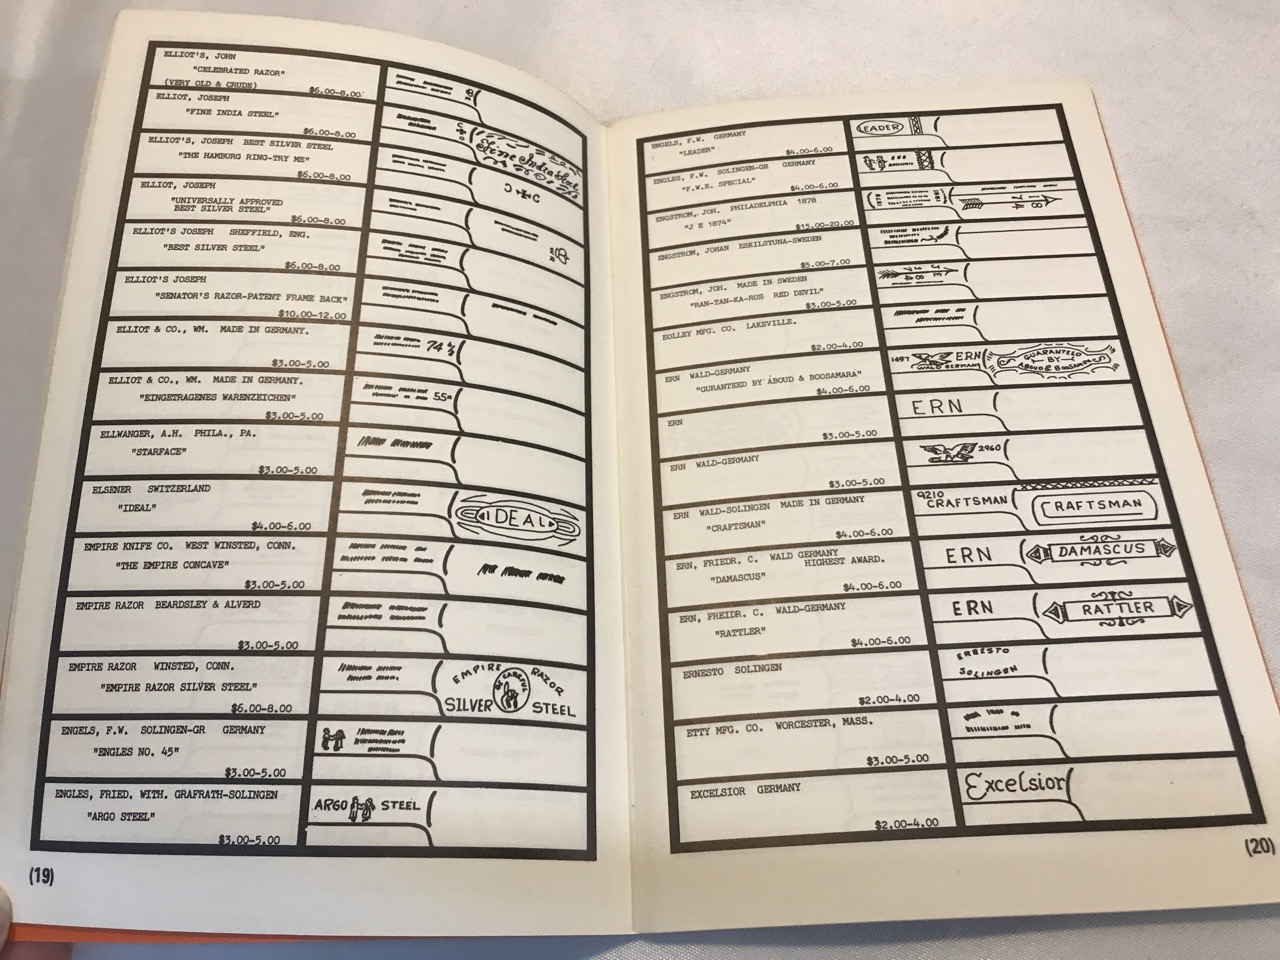 ELLIOT'S, JOHN
"CELEBRATED RAZOR"
(VERY OLD & CRUDE) $6.00-8.00
ELLIOT, JOSEPH
"FINE INDIA STEEL"
$6.00-8.00
ELLIOT'S, JOSEPH BEST SILVER STEEL
"THE HAMBURG RING-TRY ME"
$6.00-8.00
ELLIOT, JOSEPH
"UNIVERSALLY APPROVED
BEST SILVER STEEL"
$6.00-8.00
ELLIOT'S JOSEPH SHEFFIELD, ENG.
"BEST SILVER STEEL"
$6.00-8.00
ELLIOT'S JOSEPH
"SENATOR'S RAZOR-PATENT FRAME BACK"
$10.00-12.00
ELLIOT & CO., WM. MADE IN GERMANY.
$3.00-5.00
74
ELLIOT & CO., WM. MADE IN GERMANY.
"EINGETRAGENES WARENZEICHEN"
$3.00-5.00
ELLWANGER, A.H. PHILA., PA.
"STARFACE"
$3.00-5.00
ELSENER SWITZERLAND
"IDEAL"
$4.00-6.00
IDEAL
EMPIRE KNIFE CO. WEST WINSTED, CONN.
"THE EMPIRE CONCAVE"
$3.00-5.00
EMPIRE RAZOR BEARDSLEY & ALVERD
$3.00-5.00
EMPIRE RAZOR WINSTED, CONN.
"EMPIRE RAZOR SILVER STEEL"
$6.00-8.00
EMPIRE RAZOR
BE CAREFUL
SILVER STEEL
ENGELS, F.W. SOLINGEN-GR GERMANY
"ENGLES NO. 45"
$3.00-5.00
ENGLES, FRIED. WITH. GRAFRATH-SOLINGEN
"ARGO STEEL"
$3.00-5.00
ARGO STEEL
(19)
ENGELS, F.W. GERMANY
"LEADER"
$4.00-6.00
LEADER
ENGLES, F.W. SOLINGEN-GR GERMANY
"F.W.E. SPECIAL"
$4.00-6.00
ENGSTROM, JOH. PHILADELPHIA 1878
"J E 1874"
$15.00-20.00
ENGSTROM, JOHAN ESKILSTUNA-SWEDEN
$5.00-7.00
ENGSTROM, JOH. MADE IN SWEDEN
"RAN-TAN-KA-RUS RED DEVIL"
$3.00-5.00
EOLLEY MFG. CO. LAKEVILLE.
$2.00-4.00
ERN WALD-GERMANY
"GURANTEED BY ABOUD & BOOSAMARA"
$4.00-6.00
1497 ERN
WALD GERMANY
GUARANTEED
BY
ABOUD & BOOSAMARA
ERN
$3.00-5.00
ERN
ERN WALD-GERMANY
$3.00-5.00
2960
ERN WALD-SOLINGEN MADE IN GERMANY
"CRAFTSMAN"
$4.00-6.00
9210
CRAFTSMAN
RAFTSMAN
ERN, FRIEDR. C. WALD GERMANY
HIGHEST AWARD.
"DAMASCUS"
$4.00-6.00
ERN
DAMASCUS
ERN, FREIDR. C. WALD-GERMANY
"RATTLER"
$4.00-6.00
ERN
RATTLER
ERNESTO SOLINGEN
$2.00-4.00
ERNESTO
SOLINGEN
ETTY MFG. CO. WORCESTER, MASS.
$3.00-5.00
EXCELSIOR GERMANY
$2.00-4.00
Excelsior
(20)